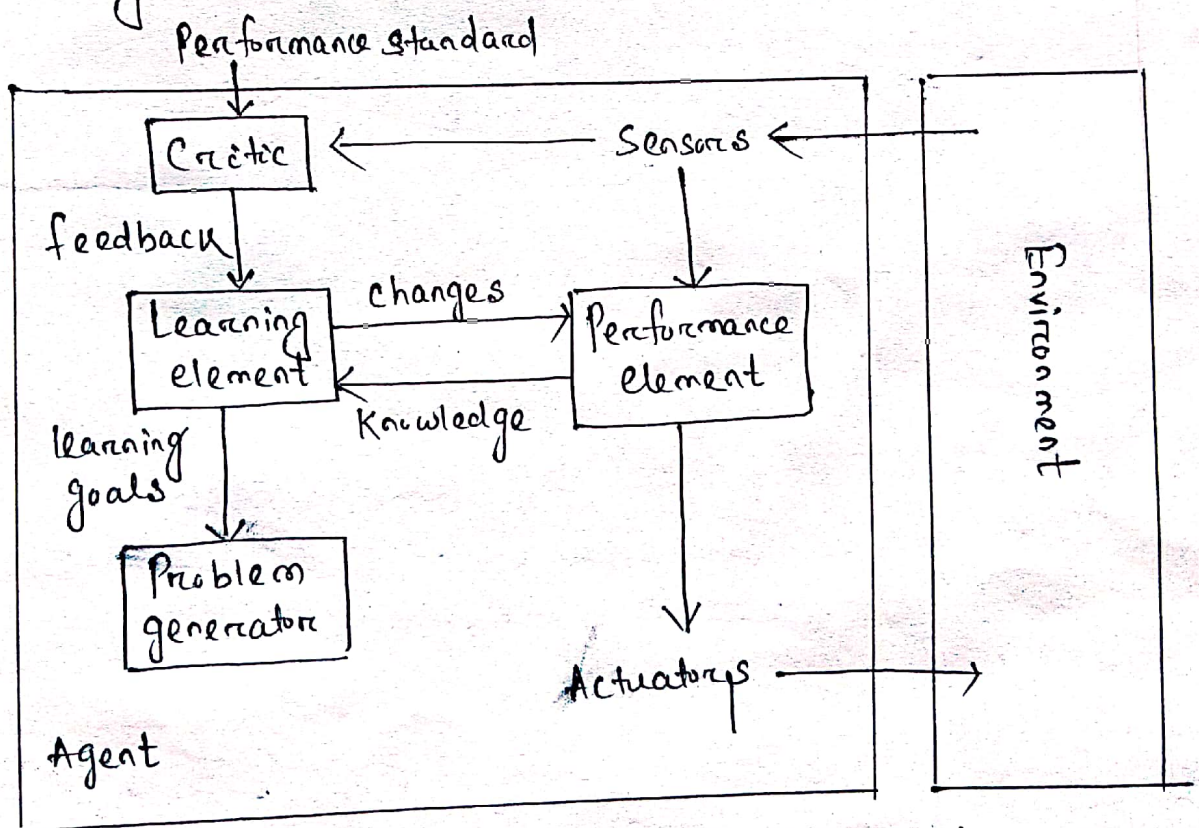 Performance standard
Critic
Sensors
feedback
changes
Learning
element
Performance
element
Knowledge
learning
goals
Problem
generator
Actuators
Agent
Environment